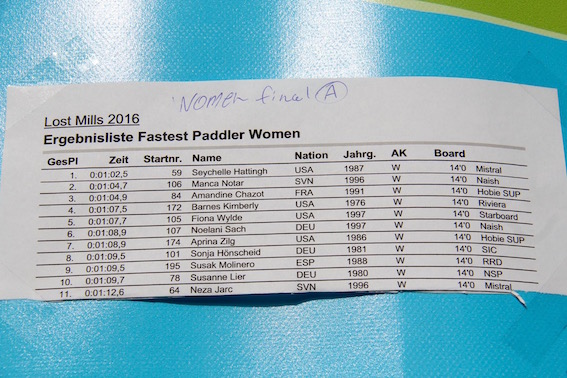 WOMEN final A
Lost Mills 2016
Ergebnisliste Fastest Paddler Women
GesPl Zeit Startnr. Name Nation Jahrg. AK Board
1. 0:01:02,5 59 Seychelle Hattingh USA 1987 W 14'0 Mistral
2. 0:01:04,7 106 Manca Notar SVN 1996 W 14'0 Naish
3. 0:01:04,9 84 Amandine Chazot FRA 1991 W 14'0 Hobie SUP
4. 0:01:07,5 172 Barnes Kimberly USA 1976 W 14'0 Riviera
5. 0:01:07,7 105 Fiona Wylde USA 1997 W 14'0 Starboard
6. 0:01:08,9 107 Noelani Sach DEU 1997 W 14'0 Naish
7. 0:01:08,9 174 Aprina Zilg USA 1986 W 14'0 Hobie SUP
8. 0:01:09,5 101 Sonja Hönscheid DEU 1981 W 14'0 SIC
9. 0:01:09,5 195 Susak Molinero ESP 1988 W 14'0 RRD
10. 0:01:09,7 78 Susanne Lier DEU 1980 W 14'0 NSP
11. 0:01:12,6 64 Neza Jarc SVN 1996 W 14'0 Mistral